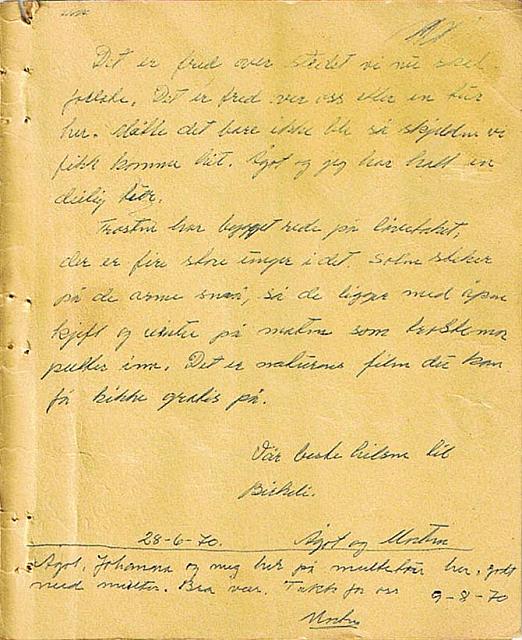 Det er fred over stedet vi nu skal
forlate. Det er fred over oss etter en tur
her. Måtte det bare ikke bli så skjelden vi
fikk komme hit. Ågot og jeg har hatt en
deilig tur.
Trosten har bygget rede på
der er fire store unger i det. Solen steker
på de arme små, så de ligger med åpen
kjeft og venter på maten som
putter inn. Det er naturens film du kan
få kikke gratis på.
Vår beste hilsen til
28-6-70. Ågot og Morten
Agot, Johanna og meg her på multetur her, godt
med multer. Bra vær. Takk for oss 9-8-70